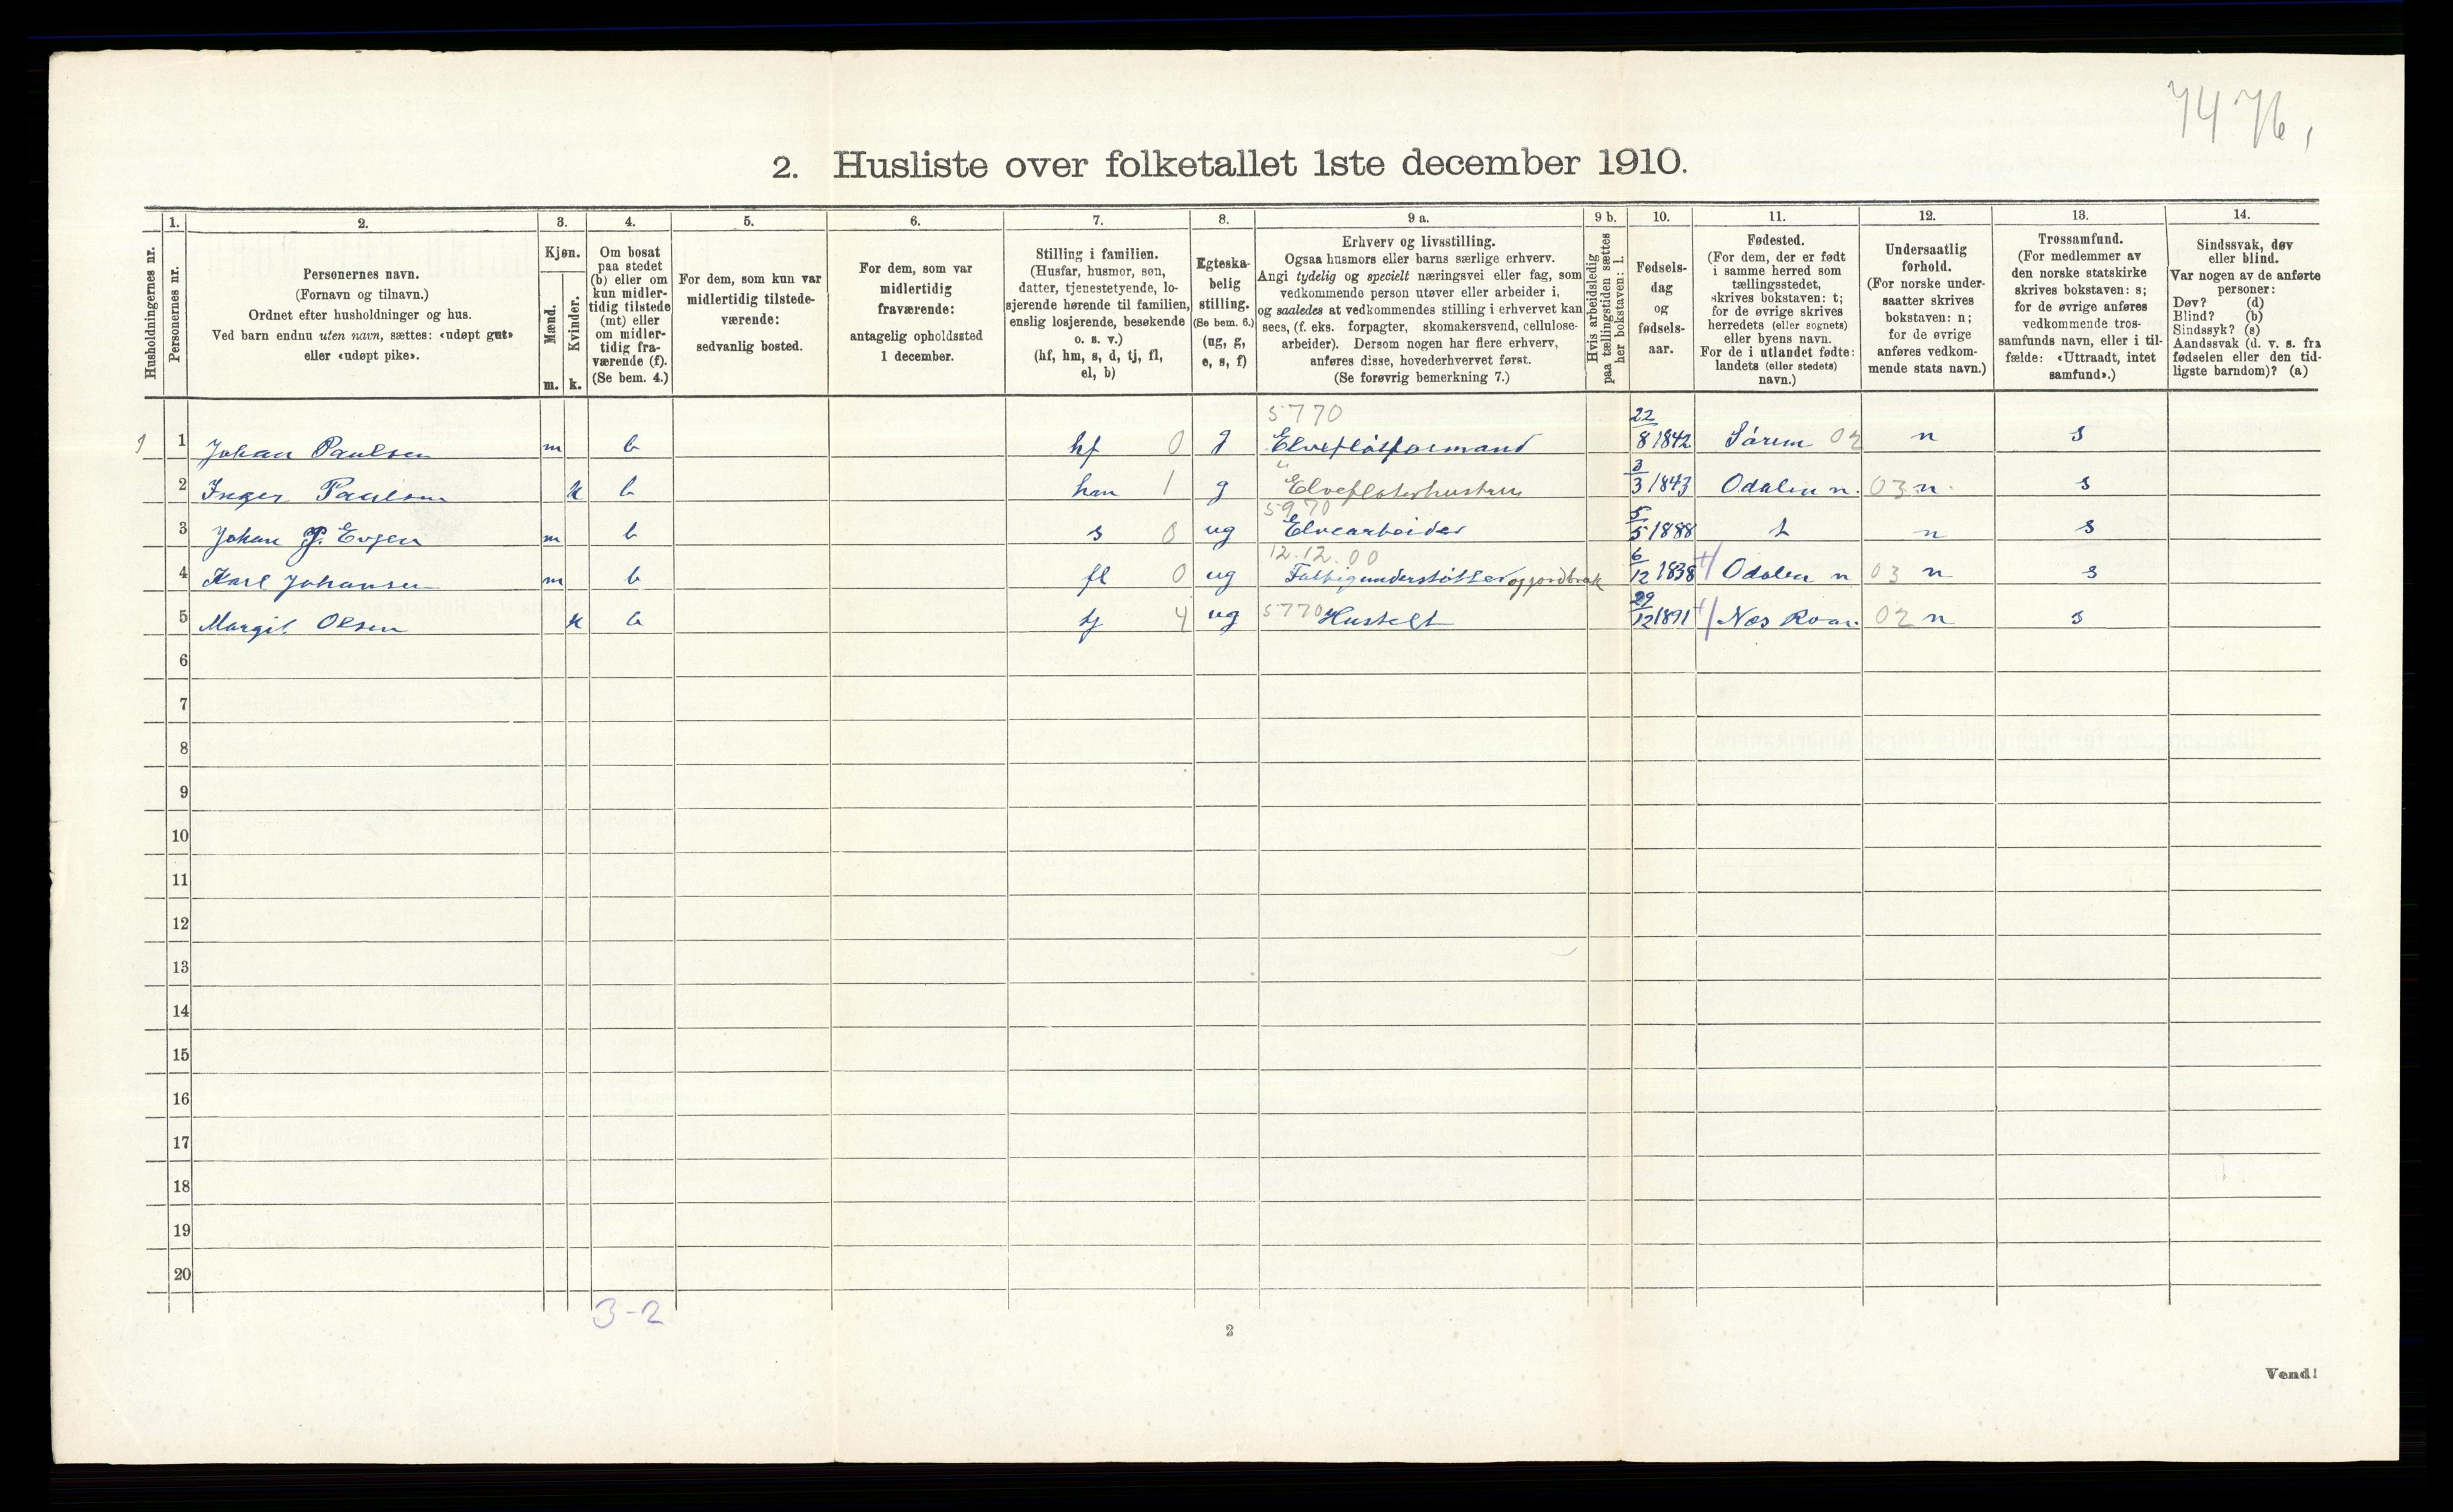 7476,
2. Husliste over folketallet 1ste december 1910.
Husholdningernes nr.
1. Personernes nr.
2. Personernes navn.
(Fornavn og tilnavn.)
Ordnet efter husholdninger og hus.
Ved barn endnu uten navn, sættes: «udøpt gut»
eller «udøpt pike».
3. Kjøn.
Mænd. m.
Kvinder. k.
4. Om bosat
paa stedet
(b) eller om
kun midler-
tidig tilstede
(mt) eller
om midler-
tidig fra-
værende (f).
(Se bem. 4.)
5. For dem, som kun var
midlertidig tilstede-
værende:
sedvanlig bosted.
6. For dem, som var
midlertidig
fraværende:
antagelig opholdssted
1 december.
7. Stilling i familien.
(Husfar, husmor, søn,
datter, tjenestetyende, lo-
sjerende hørende til familien,
enslig losjerende, besøkende
o. s. v.)
(hf, hm, s, d, tj, fl,
el, b)
8. Egteska-
belig
stilling.
(Se bem. 6.)
(ug, g,
e, s, f)
9 a. Erhverv og livsstilling.
Ogsaa husmors eller barns særlige erhverv.
Angi tydelig og specielt næringsvei eller fag, som
vedkommende person utøver eller arbeider i,
og saaledes at vedkommendes stilling i erhvervet kan
sees, (f. eks. forpagter, skomakersvend, cellulose-
arbeider). Dersom nogen har flere erhverv,
anføres disse, hovederhvervet først.
(Se forøvrig bemerkning 7.)
9 b. Hvis arbeidsledig
paa tællingstiden sættes
her bokstaven: l.
10. Fødsels-
dag
og
fødsels-
aar.
11. Fødested.
(For dem, der er født
i samme herred som
tællingsstedet,
skrives bokstaven: t;
for de øvrige skrives
herredets (eller sognets)
eller byens navn.
For de i utlandet fødte:
landets (eller stedets)
navn.)
12. Undersaatlig
forhold.
(For norske under-
saatter skrives
bokstaven: n;
for de øvrige
anføres vedkom-
mende stats navn.)
13. Trossamfund.
(For medlemmer av
den norske statskirke
skrives bokstaven: s;
for de øvrige anføres
vedkommende tros-
samfunds navn, eller i til-
fælde: «Uttraadt, intet
samfund».)
14. Sindssvak, døv
eller blind.
Var nogen av de anførte
personer:
Døv? (d)
Blind? (b)
Sindssyk? (s)
Aandssvak (d. v. s. fra
fødselen eller den tid-
ligste barndom)? (a)
5770
1 1 Johan Paulsen m b hf 0 g Elvefløtformand 22/8 1842 Sørum 02 n s
2 Inger Paulsen k b hm 1 g Elvefløterhustru 3/3 1843 Odalen n. 03 n. s
5970
3 Johan P. Evjen m b s 0 ug Elvearbeider 5/5 1888 t n s
12.12.00
4 Karl Johansen m b fl 0 ug Fattigunderstøttet og jordbruk 6/12 1838 Odalen n 03 n s
5 Margit Olsen k b tj 4 ug 5770 Hustelt 29/12 1891 Nes Rom. 02 n s
6
7
8
9
10
11
12
13
14
15
16
17
18
19
20
3-2
2
Vend!